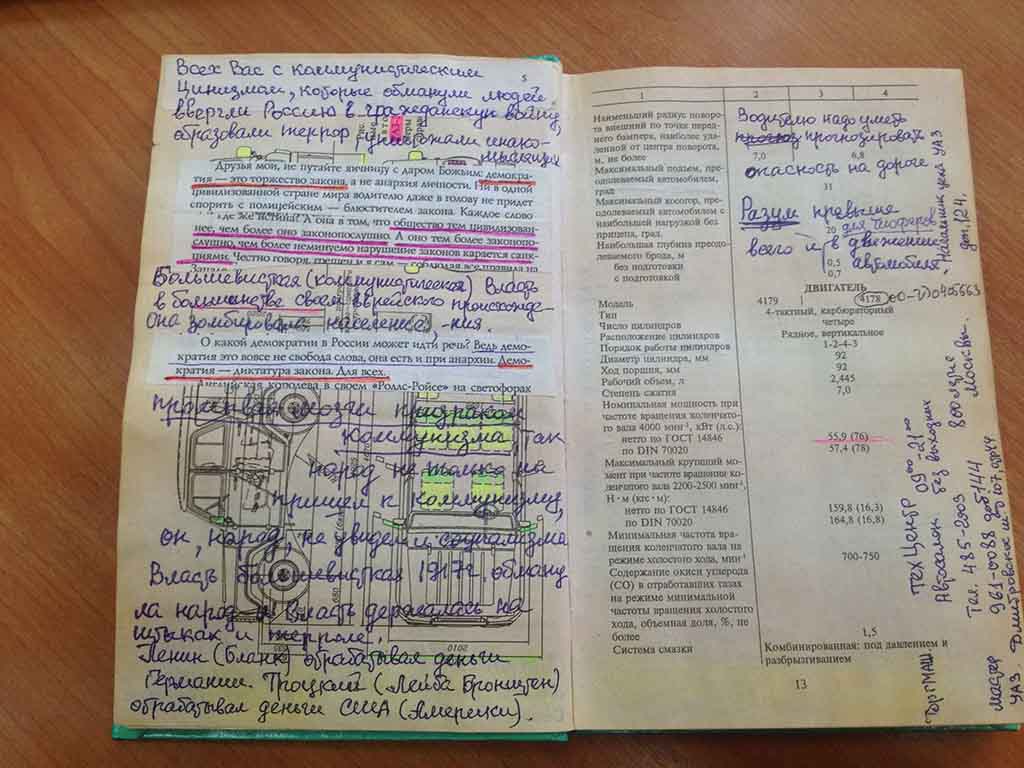 5
Всех Вас с коммунистическим
Цинизмом, которые обманули людей
ввергли Россию в гражданскую войну,
образовали террор уничтожали инако-
мыслящих
Друзья мои, не путайте яичницу с даром Божьим: демокра-
тия — это торжество закона, а не анархия личности. Ни в одной
цивилизованной стране мира водителю даже в голову не придет
спорить с полицейским — блюстителем закона. Каждое слово
где же истина? А она в том, что общество тем цивилизован-
нее, чем более оно законопослушно. А оно тем более законопо-
слушно, чем более неминуемо нарушение закона карается санк-
циями. Честно говоря, грешен и я сам
Большевистская (коммунистическая) Власть
в большинстве своей еврейского происхожде-
Она зомбировала население, -ния.
О какой демократии в России может идти речь? Ведь демо-
кратия это вовсе не свобода слова, она есть и при анархии. Демо-
кратия — диктатура закона. Для всех.
Английская королева в своем «Роллс-Ройсе» на светофорах
промывая мозги призраком
коммунизма так
народ не только не
пришел к коммунизму,
он, народ, не увидел и социализма
Власть большевистская 1917г. обману
ла народ и Власть держалась на
штыках и терроре.
Ленин (Бланк) обрабатывал деньги
Германии. Троцкий (Лейба Бронштен)
обрабатывал деньги США (Америки).
0102
1 2 3 4
Наименьший радиус поворо-
та внешний по точке перед-
него бампера, наиболее уда-
ленной от центра поворота,
м, не более 7,0 6,8
Максимальный подъем, пре-
одолеваемый автомобилем,
град 31
Максимальный косогор, пре-
одолеваемый автомобилем с
наибольшей нагрузкой без
прицепа, град. 20
Наибольшая глубина преодо-
леваемого брода, м
без подготовки 0,5
с подготовкой 0,7
Водителю надо уметь
прогнозировать
опасность на дороге
Разум превыше
для шоферов
всего и в движении
автомобиля.
ДВИГАТЕЛЬ
Модель 4179 4178
Тип 4-тактный, карбюраторный
Число цилиндров четыре
Расположение цилиндров Рядное, вертикальное
Порядок работы цилиндров 1-2-4-3
Диаметр цилиндра, мм 92
Ход поршня, мм 92
Рабочий объем, л 2,445
Степень сжатия 7,0
Номинальная мощность при
частоте вращения коленчато-
го вала 4000 мин-¹, кВт (л.с.):
нетто по ГОСТ 14846 55,9 (76)
по DIN 70020 57,4 (78)
Максимальный крутящий мо-
мент при частоте вращения ко-
ленчатого вала 2200-2500 мин-¹,
Н·м (кгс·м):
нетто по ГОСТ 14846 159,8 (16,3)
по DIN 70020 164,8 (16,8)
Минимальная частота вра-
щения коленчатого вала на
режиме холостого хода, мин-¹ 700-750
Содержание окиси углерода
(СО) в отработавших газах
на режиме минимальной
частоты вращения холостого
хода, объемная доля, %, не
более 1,5
Система смазки Комбинированная: под давлением и
разбрызгиванием
13
ТОРГМАШ
Тех Центр 09⁰⁰-21⁰⁰
Автосалон без выходных
Тел. 485-2003
Москвы.
Мастер 965-0088 доб 144
УАЗ. Дмитровское ш. 107
Начальник цеха УАЗ
доп. 124.